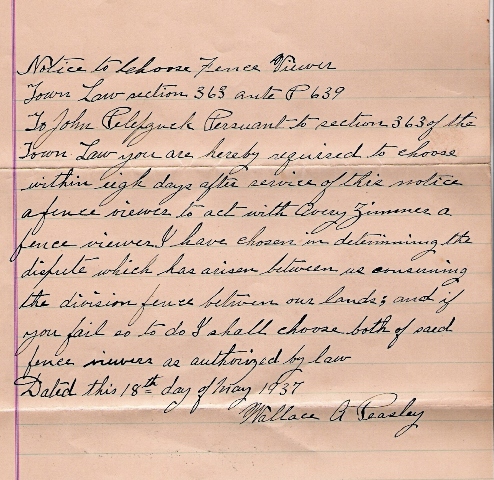 Notice to Choose Fence Viewer
Town Law section 363 ante P 639
To John Persuant to section 363 of the
Town Law you are hereby required to choose
within eigh days after service of this notice
a fence viewer to act with Avery Zimmer a
fence viewer I have chosen in determining the
dispute which has arisen between us
the division fence between our lands; and if
you fail so to do I shall choose both of said
fence viewers as authorized by law
Dated this 18th day of May 1937
Wallace A Peasley